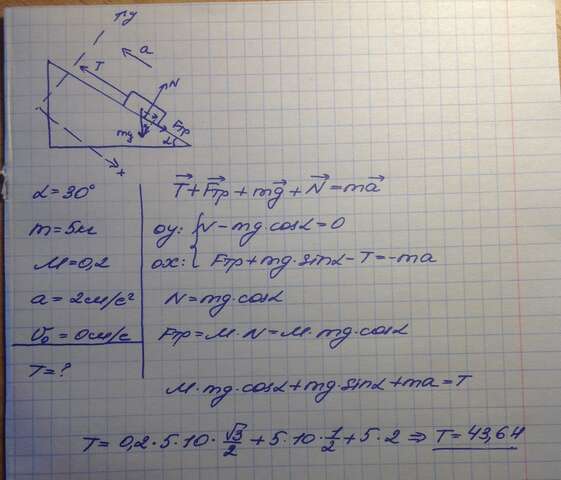 ↑y
a
T
N
mg
Fтр
α
x
α=30°
m=5кг
M=0,2
a=2м/с²
V₀=0м/с
T=?
T⃗+F⃗тр+mg⃗+N⃗=ma⃗
oy: { N-mg·cosα=0
ox: { Fтр+mg·sinα-T=-ma
N=mg·cosα
Fтр=M·N=M·mg·cosα
M·mg·cosα+mg·sinα+ma=T
T=0,2·5·10·√3/2+5·10·1/2+5·2 ⇒ T=43,64